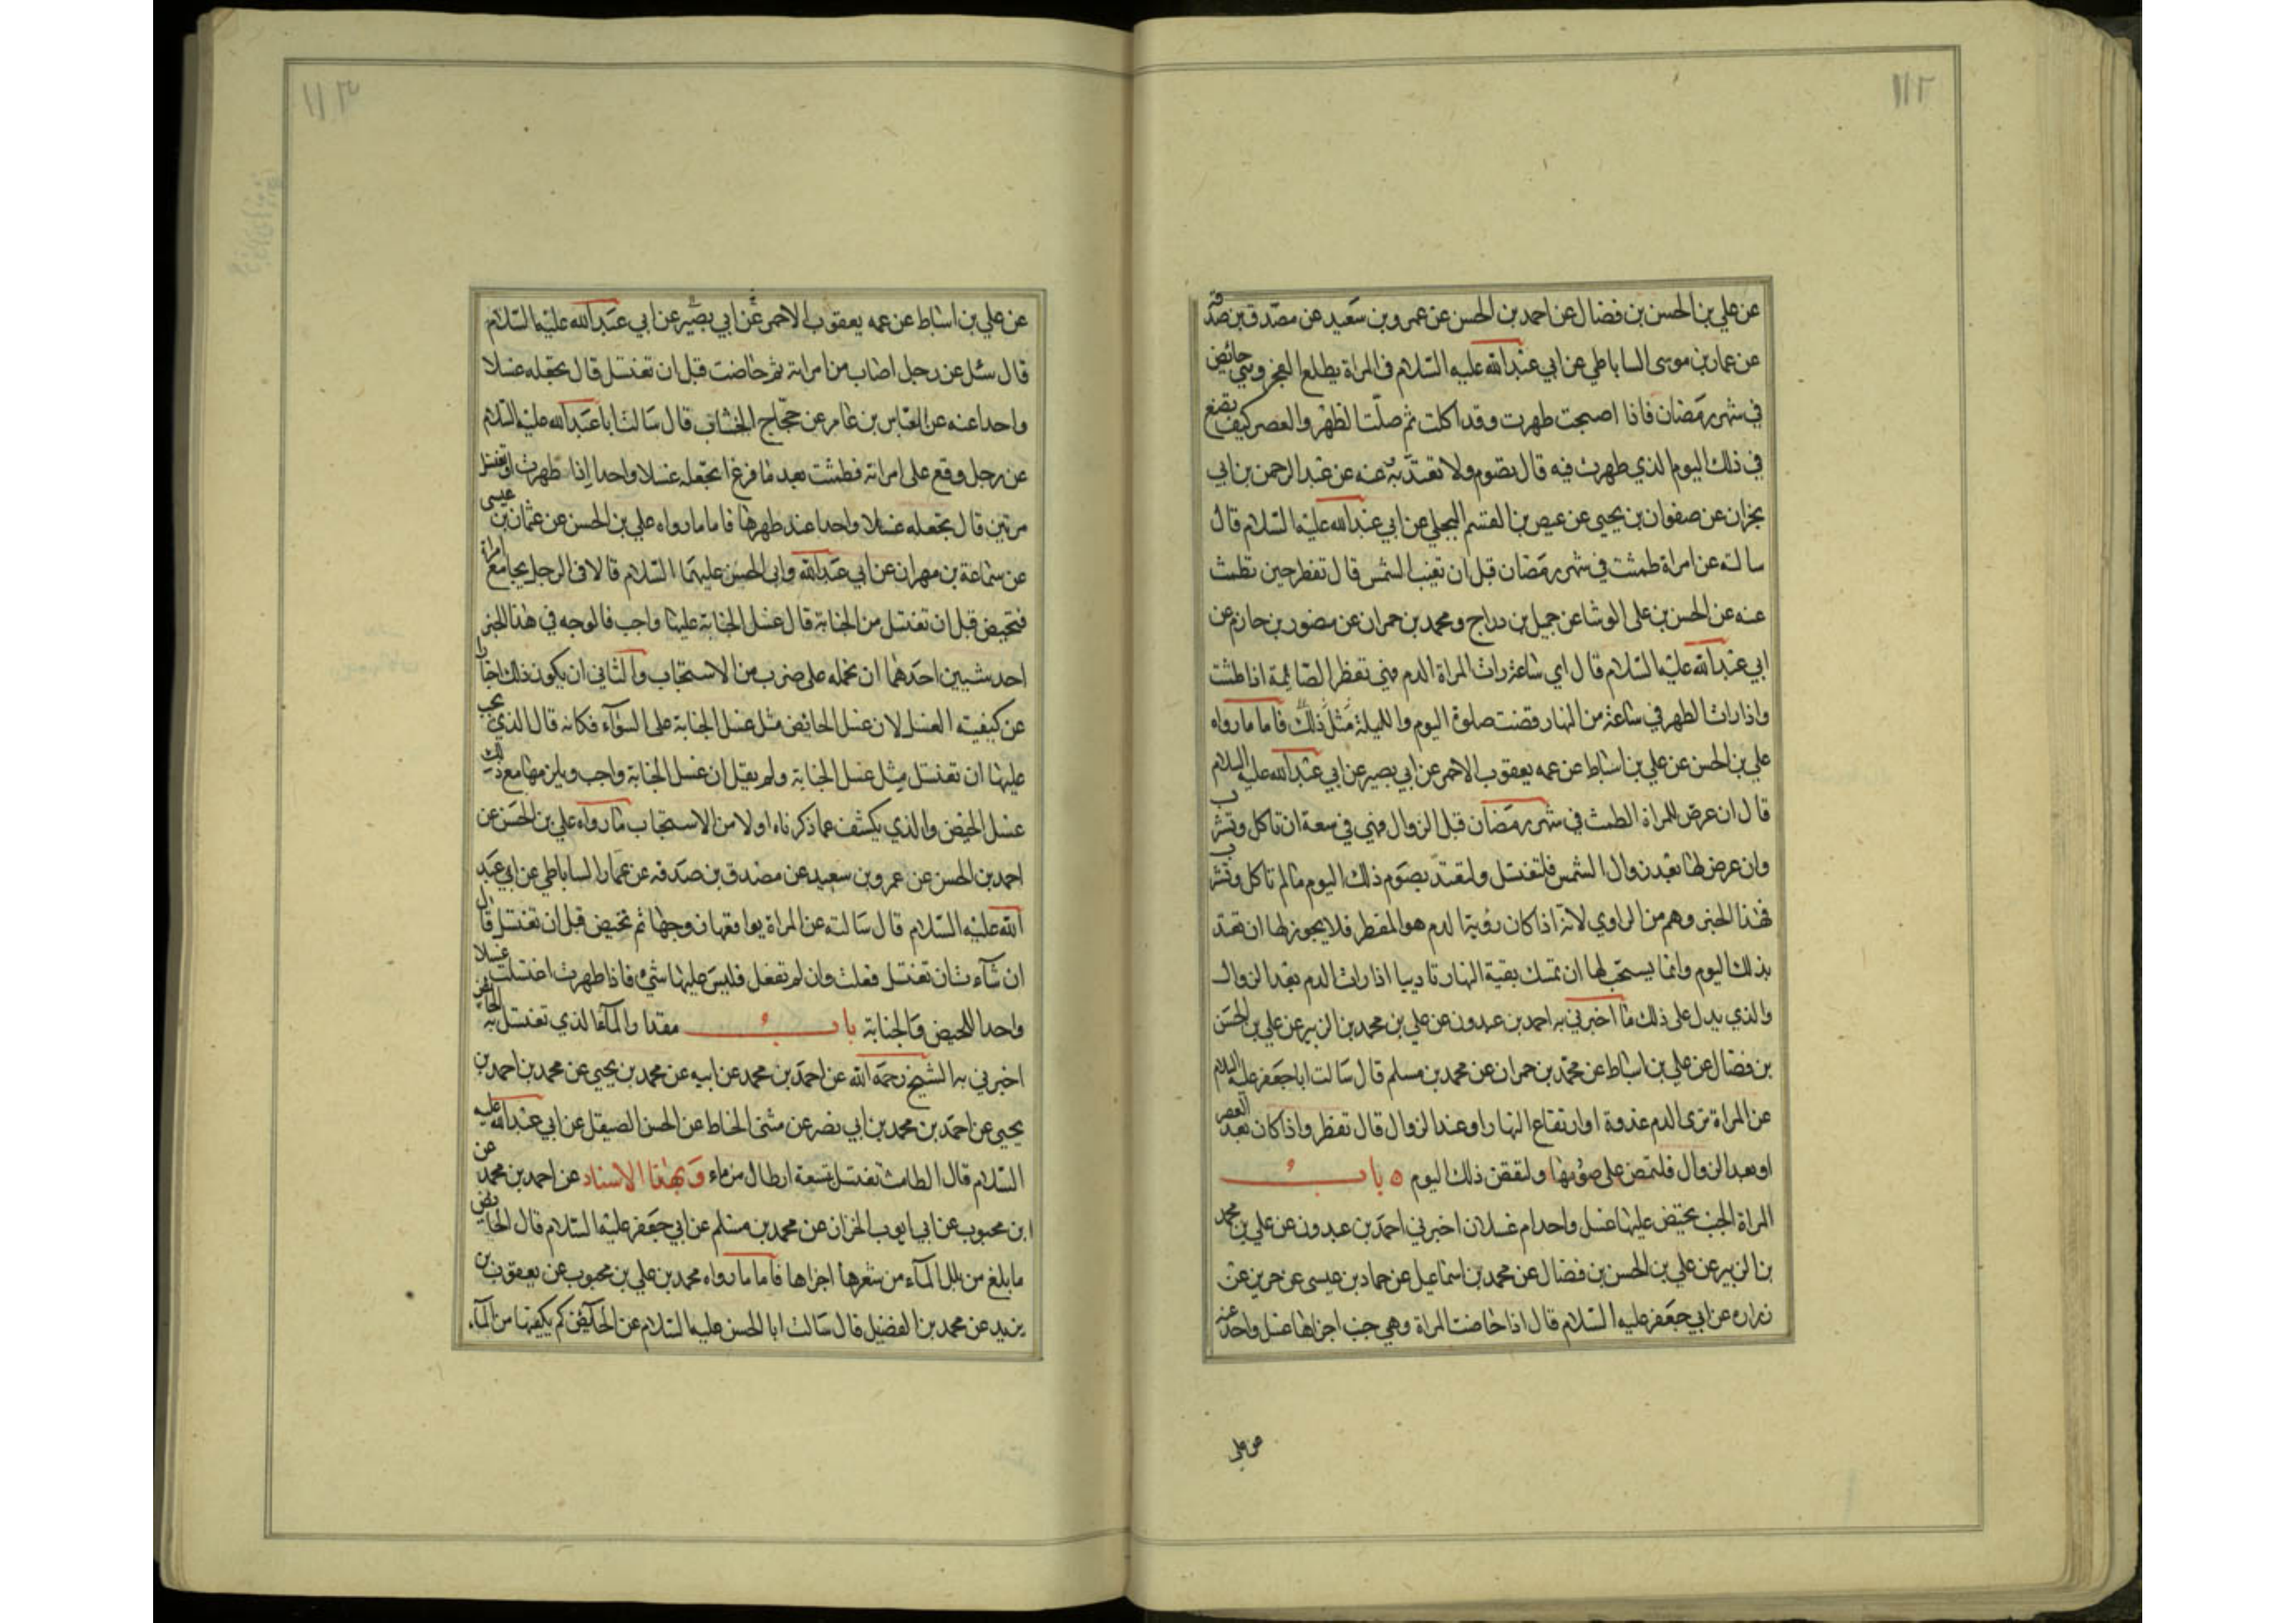 ١١٢
عن علي بن الحسن بن فضال عن احمد بن الحسن عن عمرو بن سعيد عن مصدق بن صدقة
عن عمار بن موسى الساباطي عن ابي عبد الله عليه السلام في المراة يطلع الفجر وهي حائض
في شهر رمضان فاذا اصبحت طهرت وقد اكلت ثم صلت الظهر والعصر كيف تصنع
في ذلك اليوم الذي طهرت فيه قال تصوم ولا تعتد به عنه عن عبد الرحمن بن ابي
نجران عن صفوان بن يحيى عن عيص بن القسم البجلي عن ابي عبد الله عليه السلام قال
سالته عن امراة طمثت في شهر رمضان قبل ان تغيب الشمس قال تفطر حين تطمث
عنه عن الحسن بن علي الوشا عن جميل بن دراج ومحمد بن حمران عن منصور بن حازم عن
ابي عبد الله عليه السلام قال اي ساعة رات المراة الدم فهي تفطر الصائمة اذا طمثت
واذا رات الطهر في ساعة من النهار قضت صلوة اليوم والليلة مثل ذلك فاما ما رواه
علي بن الحسن عن علي بن اسباط عن عمه يعقوب الاحمر عن ابي بصير عن ابي عبد الله عليه السلام
قال ان عرض للمراة الطمث في شهر رمضان قبل الزوال فهي في سعة ان تاكل وتشرب
وان عرض لها بعد زوال الشمس فلتغتسل ولتعتد بصوم ذلك اليوم ما لم تاكل وتشرب
فهذا الخبر وهم من الراوي لانه اذا كان رؤية الدم هو المفطر فلا يجوز لها ان تعتد
بذلك اليوم وانما يستحب لها ان تمسك بقية النهار تاديبا اذا رات الدم بعد الزوال
والذي يدل على ذلك ما اخبرني به احمد بن عبدون عن علي بن محمد بن الزبير عن علي بن الحسن
بن فضال عن علي بن اسباط عن محمد بن حمران عن محمد بن مسلم قال سالت ابا جعفر عليه السلام
عن المراة ترى الدم غدوة او ارتفاع النهار او عند الزوال قال تفطر واذا كان بعد العصر
او بعد الزوال فلتمض على صومها ولتقض ذلك اليوم ٥ باب
المراة الجنب تحيض عليها غسل واحد ام غسلان اخبرني احمد بن عبدون عن علي بن محمد
بن الزبير عن علي بن الحسن بن فضال عن محمد بن اسماعيل عن حماد بن عيسى عن حريز عن
زرارة عن ابي جعفر عليه السلام قال اذا حاضت المراة وهي جنب اجزاها غسل واحد عنه
عن علي
١١٣
عن علي بن اسباط عن عمه يعقوب الاحمر عن ابي بصير عن ابي عبد الله عليه السلام
قال سئل عن رجل اصاب من امراته ثم حاضت قبل ان تغتسل قال تجعله غسلا
واحدا عنه عن العباس بن عامر عن حجاج الخشاب قال سالت ابا عبد الله عليه السلام
عن رجل وقع على امراته فطمثت بعد ما فرغ اتجعله غسلا واحدا اذا طهرت او تغتسل
مرتين قال تجعله غسلا واحدا عند طهرها فاما ما رواه علي بن الحسن عن عثمان بن عيسى
عن سماعة بن مهران عن ابي عبد الله وابي الحسن عليهما السلام قالا في الرجل يجامع امراة
فتحيض قبل ان تغتسل من الجنابة قال غسل الجنابة عليها واجب فالوجه في هذا الخبر
احد شيئين احدهما ان نحمله على ضرب من الاستحباب والثاني ان يكون ذلك اخبارا
عن كيفية الغسل لان غسل الحائض مثل غسل الجنابة على السوآء فكانه قال الذي يجب
عليها ان تغتسل مثل غسل الجنابة ولم يقل ان غسل الجنابة واجب ويلزمها مع ذلك
غسل الحيض والذي يكشف عما ذكرناه اولا من الاستحباب ما رواه علي بن الحسن عن
احمد بن الحسن عن عمرو بن سعيد عن مصدق بن صدقه عن عمار الساباطي عن ابي عبد
الله عليه السلام قال سالته عن المراة يواقعها زوجها ثم تحيض قبل ان تغتسل قال
ان شآءت ان تغتسل فعلت وان لم تفعل فليس عليها شيء فاذا طهرت اغتسلت غسلا
واحدا للحيض والجنابة باب مقدار المآء الذي تغتسل به الحائض
اخبرني به الشيخ رحمه الله عن احمد بن محمد عن ابيه عن محمد بن يحيى عن محمد بن احمد بن
يحيى عن احمد بن محمد بن ابي نصر عن مثنى الحناط عن الحسن الصيقل عن ابي عبد الله عليه
السلام قال الطامث تغتسل بتسعة ارطال من ماء وبهذا الاسناد عن احمد بن محمد عن
ابن محبوب عن ابي ايوب الخزاز عن محمد بن مسلم عن ابي جعفر عليه السلام قال الحائض
ما بلغ من بلل المآء من شعرها اجزاها فاما ما رواه محمد بن علي بن محبوب عن يعقوب بن
يزيد عن محمد بن الفضيل قال سالت ابا الحسن عليه السلام عن الحائض كم يكفيها من المآء